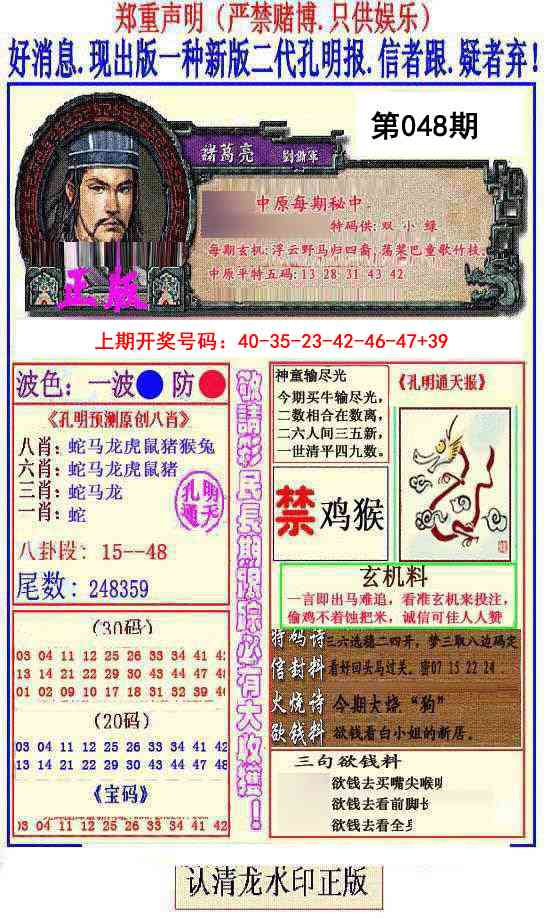 郑重声明（严禁赌博.只供娱乐）
好消息.现出版一种新版二代孔明报.信者跟.疑者弃!
第048期
諸葛亮 劉謝軍
中原每期秘中.
特码供: 双 小 绿
每期玄机:浮云野马归四裔,荡桨巴童歌竹枝.
中原平特五码:13 28 31 43 42
正版
上期开奖号码：40-35-23-42-46-47+39
波色：一波 防
《孔明预测原创八肖》
八肖: 蛇马龙虎鼠猪猴兔
六肖: 蛇马龙虎鼠猪
三肖: 蛇马龙
一肖: 蛇
孔明
通天
八卦段: 15--48
尾数: 248359
(30码)
03 04 11 12 25 26 33 34 41 42
13 14 21 22 29 30 37 38 47 48
01 02 09 10 17 18 31 32 39
(20码)
03 04 11 12 25 26 33 34 41 42
13 14 21 22 29 30 37 38 47 48
《宝码》
03 04 11 12 25 26 33 34 41 42
敬請彩民長期跟踪必有大收獲！
神童输尽光
今期买牛输尽光，
二数相合在数离，
二六人间三五新，
一世清平四九数。
《孔明通天报》
禁 鸡猴
玄机料
一言即出马难追，看准玄机来投注，
偷鸡不着蚀把米，诚信可佳人人赞
特码诗 三六选穗二四开，梦三取八边码定
信封料 看好回头马过关。密07 15 22 24
火烧诗 今期大烧“狗”
欲钱料 欲钱看白小姐的新居。
三句欲钱料
欲钱去买嘴尖喉
欲钱去看前脚
欲钱去看全
认清龙水印正版